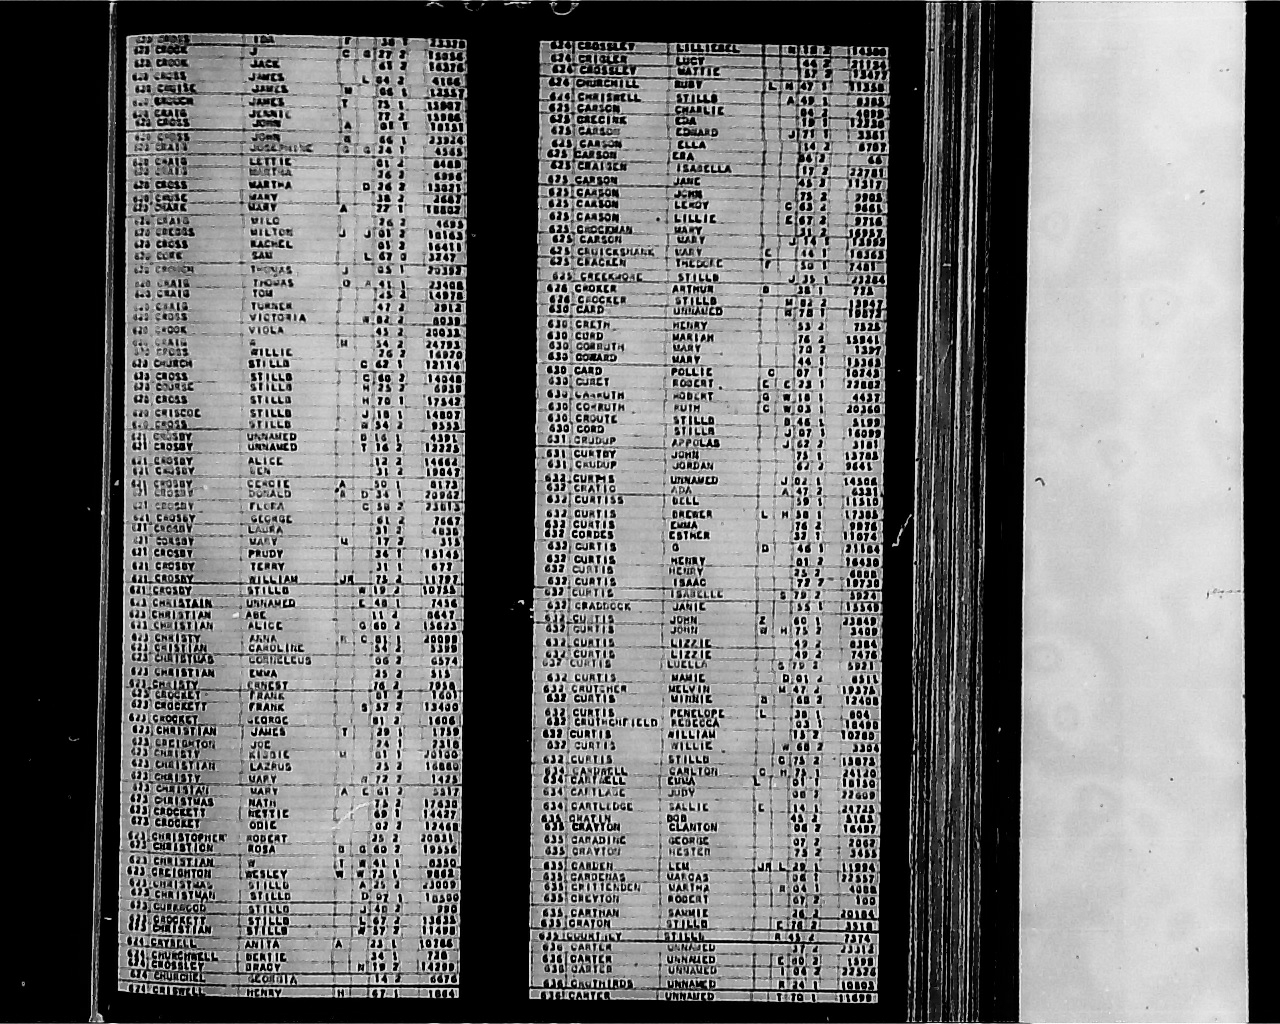 620 CROSS IDA F 38 1 23320
620 CROOK J C G 27 2 18036
JACK 61 2 16376
620 CROSS JAMES L 04 2 4186
620 CRUISE JAMES M 06 1 12557
CROUCH JAMES T 75 1 15907
CRAIG JENNIE 77 2 15986
620 CROSS JOHN A
CROSS JOHN 66 1 23924
CRAIG JOSEPHINE G 24 1 4565
620 CRAIG LETTIE 01 2 8489
CRAIG MARTHA 26 2 6996
620 CROSS MARTHA D 26 2 13021
620 CRUSE MARY 38 2 2687
MARY A 27 1 18802
CRAIG MILO 26 2 4693
CREGGS MILTON J J 01 2 10163
620 CROSS RACHEL 01 2 16411
SAM L 67 0 3247
CROUCH THOMAS J 05 1 20392
CRAIG THOMAS O A 41 1 23408
620 CRAIG TOM 25 2 14978
CRAIG TURNER 47 2 2912
620 CROSS VICTORIA W 82 2 8039
620 CROOK VIOLA 45 2 20033
CRAIG M 54 2 24793
CROSS WILLIE 26 2 16970
620 CHURCH STILLB C 62 1 12114
620 CROSS STILLB C 60 2 14048
620 COURSE STILLB H 75 2 6938
620 CROSS STILLB H 70 1 17542
620 CRISCOE STILLB J 18 1 14807
620 CROSS STILLB W 54 2 9555
621 CROSBY UNNAMED D 16 1 4391
621 CROSBY UNNAMED T 16 2 12225
621 CROSBY ALICE 12 2 14662
621 CROSBY BEN 31 2 19047
621 CROSBY GEROIE A 50 1 8173
CROSBY DONALD R D 34 1 20962
621 CROSBY FLORA C 58 2 23013
621 CROSBY GEORGE 61 2 7667
621 CROSBY LAURA 31 2 4836
621 CORSBY MARY M 17 2 315
621 CROSBY PRUDY 34 1 15145
621 CROSBY TERRY 31 1 677
621 CROSBY WILLIAM JR 75 2 11797
621 CROSBY STILLB W 19 2 10755
623 CHRISTAIN UNNAMED E 48 1 7456
623 CHRISTIAN ABE 11 4 8647
623 CHRISTIAN ALICE G 60 2 15623
623 CHRISTY ANNA R C 81 1 20098
623 CRISTIAN CAROLINE 54 2 3399
623 CHRISTMAS CORNELEUS 06 2 6574
623 CHRISTIAN EMMA 25 2 515
623 CHRISTY ERNEST 76 2 7950
623 CROCKET FRANK 01 2 1601
623 CROCKETT FRANK S 57 2 13400
623 CROCKET GEORGE 01 2 1606
623 CHRISTIAN JAMES T 29 1 1759
623 CREIGHTON JOE 24 1 2318
623 CHRISTY KISSIE M 61 1 20100
623 CHRISTIAN LAZRUS 25 2 16880
623 CHRISTY MARY R 72 2 1425
623 CHRISTIAN MARY A E 61 2 5517
623 CHRISTMAS NATH 75 2 17630
623 CROCKETT NETTIE 69 1 14427
623 CROCKET ODIE 02 2 12468
623 CHRISTOPHER ROBERT 25 2 20831
623 CHRISTION ROSA B G 60 2 19556
623 CHRISTIAN W T W 41 1 8350
623 CREIGHTON WESLEY W W 73 1 9862
623 CHRISTMAS STILLB A 25 2 23009
623 CHRISTMAN STILLB D 07 1 10500
623 STILLB J 40 2 990
623 CROCKETT STILLB L 67 2 13635
623 CHRISTIAN STILLB W 37 2 11498
624 CAYRELL ANITA A 23 1 10766
624 CHURCHWELL BERTIE 34 1 738
624 CROSSLEY BRADY N 19 2 14299
624 CHURCHEL GEORGIA 14 2 6676
624 CRISWELL HENRY H 67 1 1864
624 CROSSLEY LILLIEBEL R 18 2 14380
624 CRIGLER LUCY 44 2 21194
624 CROSSLEY MATTIE 57 2 13477
624 CHURCHILL RUBY L H 47 1 11358
624 CHRISWELL STILLB A 49 1 8385
625 CARSON CHARLIE 04 2 4099
625 GREGINE EDA 19 1 12230
625 CARSON EDWARD J 71 1 3361
625 CARSON ELLA 14 2 6707
625 CARSON ERA 86 2 66
625 CRAIGEN ISABELLA 17 2 22781
625 CARSON JANE 45 2 11317
625 CARSON JOHN 75 2 3905
625 CARSON LEROY C 63 2 9661
625 CARSON LILLIE E 67 2 9716
625 CROCKMAN MARY 31 2 16957
625 CARSON MARY J 14 1 13992
625 CRUICKSHANK MARY E 44 1 18363
625 CRACKEN THEDORE F 50 1 7481
625 CREEKMORE STILLB J 35 1 23264
626 CROKER ARTHUR B 38 1 778
626 CROCKER STILLB M 82 2 13967
630 CARD UNNAMED W 70 1 19072
630 CRETH HENRY 53 2 7525
630 CORD MARIAH 76 2 15941
630 CORRUTH MARY 70 2 1397
630 COWARD MARY 44 1 13363
630 CARD POLLIE C 07 1 10245
630 CURET ROBERT E E 73 1 22882
630 CARRUTH ROBERT G W 18 1 4437
630 CORRUTH RUTH C W 03 1 20360
630 CROUTE STILLB B 46 1 5199
630 CORD STILLB J 07 1 16099
631 CRUDUP APPOLAS J 62 2 3181
631 CURTBY JOHN 75 1 13785
631 CRUDUP JORDAN 62 2 9641
632 CURTIS UNNAMED J 02 1 14506
632 CRATIC ADA A 47 2 6331
632 CURTISS BELL 59 1 11510
632 CURTIS BREWER L H 38 1 17385
632 CURTIS EMMA 76 2 9976
632 CORDES ESTHER 32 1 11074
632 CURTIS G D 46 1 21184
632 CURTIS HENRY 01 2 16430
632 CURTIS HENRY 25 2 6888
632 CURTIS ISAAC 72 2 19730
632 CURTIS ISABELLE S 79 2 3924
632 CRADDOCK JANIE 55 1 13549
632 CURTIS JOHN Z 60 1 23849
632 CURTIS JOHN W H 75 2 3409
632 CURTIS LIZZIE 49 2 8384
632 CURTIS LIZZIE 49 2 7476
632 CURTIS LUELLA S 79 2 5921
632 CURTIS MAMIE D 01 2 6511
632 CRUTCHER MELVIN M 47 2 19375
632 CURTIS MINNIE B 68 2 12408
632 CURTIS PENELOPE L 38 1 804
632 CRUTCHFIELD REBECCA 03 1 18490
632 CURTIS WILLIAM 15 2 10789
632 CURTIS WILLIE W 68 2 3304
632 CURTIS STILLB G 75 2 13873
634 CARDWELL CARLTON C H 75 1 24120
634 CARTWELL EMMA L 01 1 18150
634 CARTLAGE JUDY 08 2 22609
634 CARTLEDGE SALLIE E 14 1 24725
635 CRATIN BOB 45 2 5183
635 CRAYTON CLANTON 06 2 16497
635 CARADINE GEORGE 07 2 2062
635 CRAYTON HESTER 75 2 3455
635 CARDEN LEM JR L 29 1 15994
635 CARDENAS MARGAS 06 1 22537
635 CRITTENDEN MARTHA R 04 1 4088
635 CREYTON ROBERT 67 2 100
635 CARTHAN SAMMIE 26 2 20184
635 CRATON STILLB E 76 2 3518
635 COURTNEY STILLB R 45 2 7374
636 CARTER UNNAMED 37 2 23312
636 CARTER UNNAMED E 80 2 1599
636 CARTER UNNAMED I 04 2 22526
636 CRUTHIRDS UNNAMED R 24 1 10803
636 CARTER UNNAMED T 70 1 11699